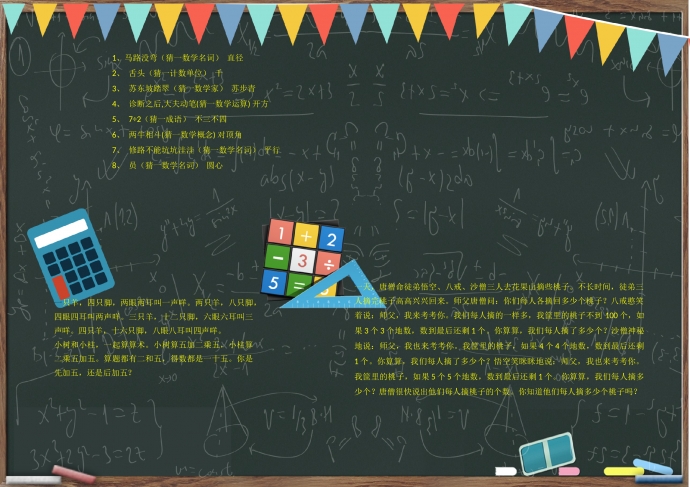 1、马路没弯（猜一数学名词） 直径
2、 舌头（猜一计数单位） 千
3、 苏东坡踏翠（猜一数学家） 苏步青
4、 诊断之后,大夫动笔(猜一数学运算) 开方
5、 7÷2（猜一成语） 不三不四
6、 两牛相斗(猜一数学概念) 对顶角
7、 修路不能坑坑洼洼（猜一数学名词） 平行
8、 员（猜一数学名词） 圆心
1 + 2
− 3 ÷
5 =
只羊，四只脚，两眼两耳叫一声咩。两只羊，八只脚，
四眼四耳叫两声咩。三只羊，十二只脚，六眼六耳叫三
声咩。四只羊，十六只脚，八眼八耳叫四声咩。
小树和小桂，一起算算术。小树算五加二乘五，小桂算
二乘五加五。算题都有二和五，得数都是一十五。你是
先加五，还是后加五？
天，唐僧命徒弟悟空、八戒、沙僧三人去花果山摘些桃子。不长时间，徒弟三
人摘完桃子高高兴兴回来。师父唐僧问：你们每人各摘回多少个桃子？八戒憨笑
着说：师父，我来考考你。我们每人摘的一样多，我筐里的桃子不到 100 个，如
果 3 个 3 个地数，数到最后还剩 1 个。你算算，我们每人摘了多少个？沙僧神秘
地说：师父，我也来考考你。我筐里的桃子，如果 4 个 4 个地数，数到最后还剩
1 个。你算算，我们每人摘了多少个？悟空笑眯眯地说：师父，我也来考考你。
我筐里的桃子，如果 5 个 5 个地数，数到最后还剩 1 个。你算算，我们每人摘多
少个？唐僧很快说出他们每人摘桃子的个数。你知道他们每人摘多少个桃子吗？